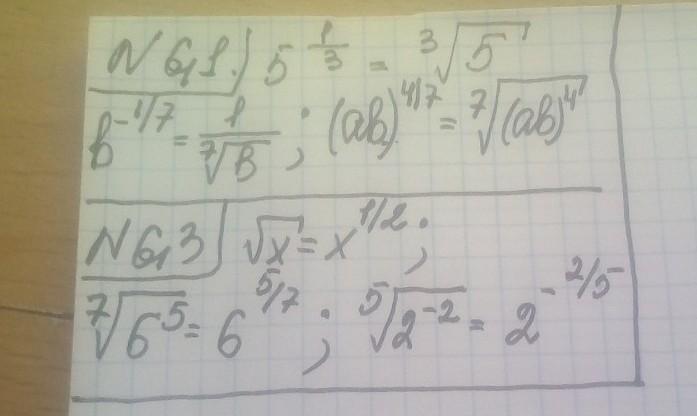 N 6,1.) 5^{1/3} = ∛5
b^{-1/7} = 1/⁷√b ; (ab)^{4/7} = ⁷√(ab)^4
N 6,3 √x = x^{1/2} ;
⁷√6^5 = 6^{5/7} ; ⁵√2^{-2} = 2^{-2/5}